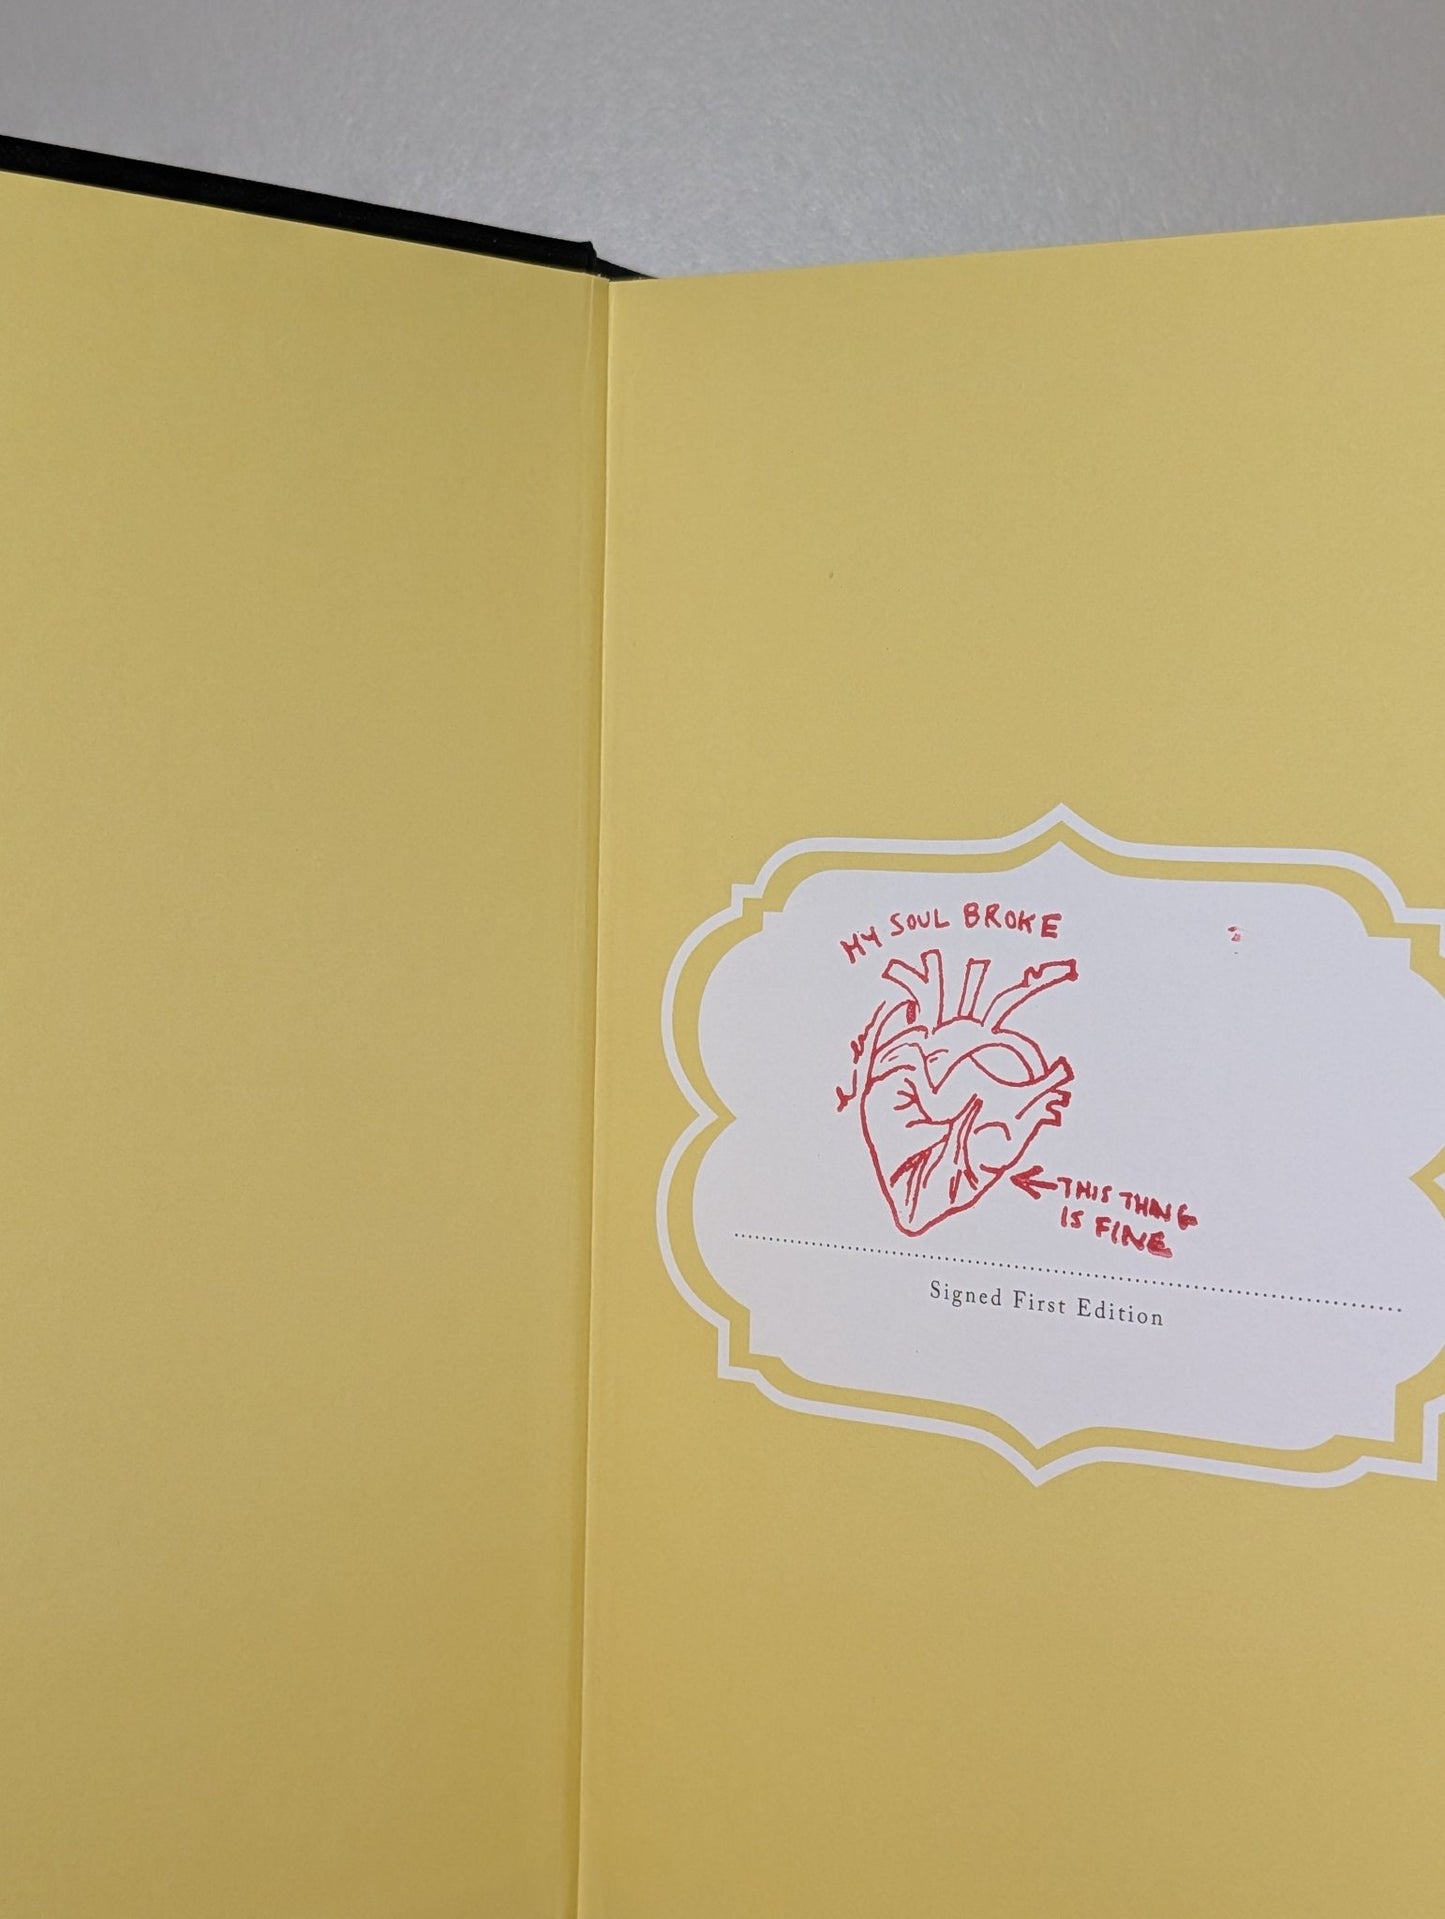 MY SOUL BROKE
THIS THING
IS FINE
Signed First Edition